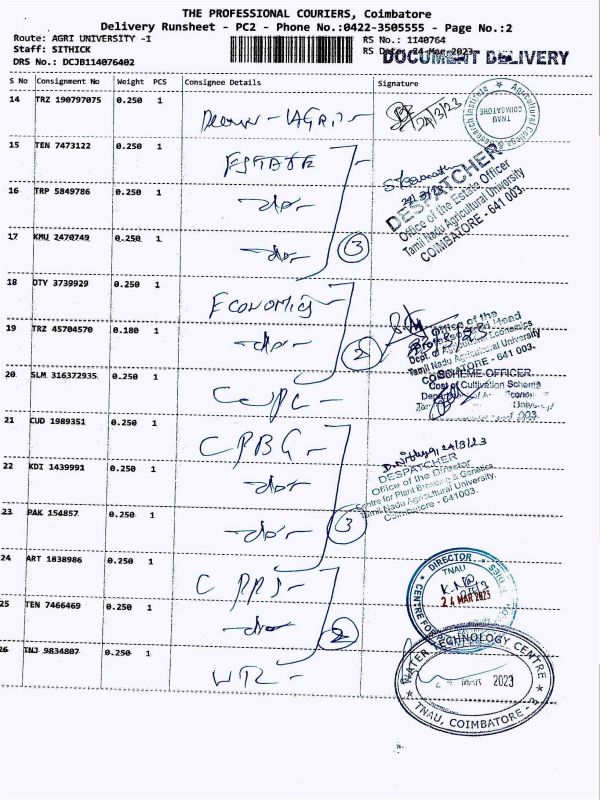 THE PROFESSIONAL COURIERS, Coimbatore
Delivery Runsheet - PC2 - Phone No.:0422-3505555 - Page No.:2
Route: AGRI UNIVERSITY -I
RS No.: 1140764
Staff: SITHICK
RS Date: 24-Mar-2023
DOCUMENT DELIVERY
DRS No.: DCJB114076402
S No Consignment No Weight PCS Consignee Details Signature
14 TRZ 190797075 0.250 1
24/3/23
Agricultural College & Research Institute
TNAU
COIMBATORE
15 TEN 7473122 0.250 1 ESTATE
16 TRP 5849786 0.250 1 -do-
DESPATCHER
Office of the Estate Officer
Tamil Nadu Agricultural University
COIMBATORE - 641 003.
17 KMU 2470749 0.250 1 -do- 3
18 DTY 3739929 0.250 1 ECONOMICS
19 TRZ 45704570 0.180 1 -do- 2
Office of the
Professor and Head
Dept. of Agricultural Economics
Tamil Nadu Agricultural University
COIMBATORE - 641 003.
20 SLM 316372935 0.250 1
SCHEME OFFICER
Cost of Cultivation Scheme
21 CUD 1989351 0.250 1 CPBG
22 KDI 1439991 0.250 1 -do-
24/3/23
DESPATCHER
Office of the Director
Centre for Plant Breeding & Genetics
Tamil Nadu Agricultural University,
Coimbatore - 641003.
23 PAK 154857 0.250 1 -do- 3
24 ART 1838986 0.250 1
DIRECTOR
TNAU
24 MAR 2023
25 TEN 7466469 0.250 1 -do- 2
26 INJ 9834807 0.250 1
WATER TECHNOLOGY CENTRE
MAR 2023
TNAU, COIMBATORE - 3